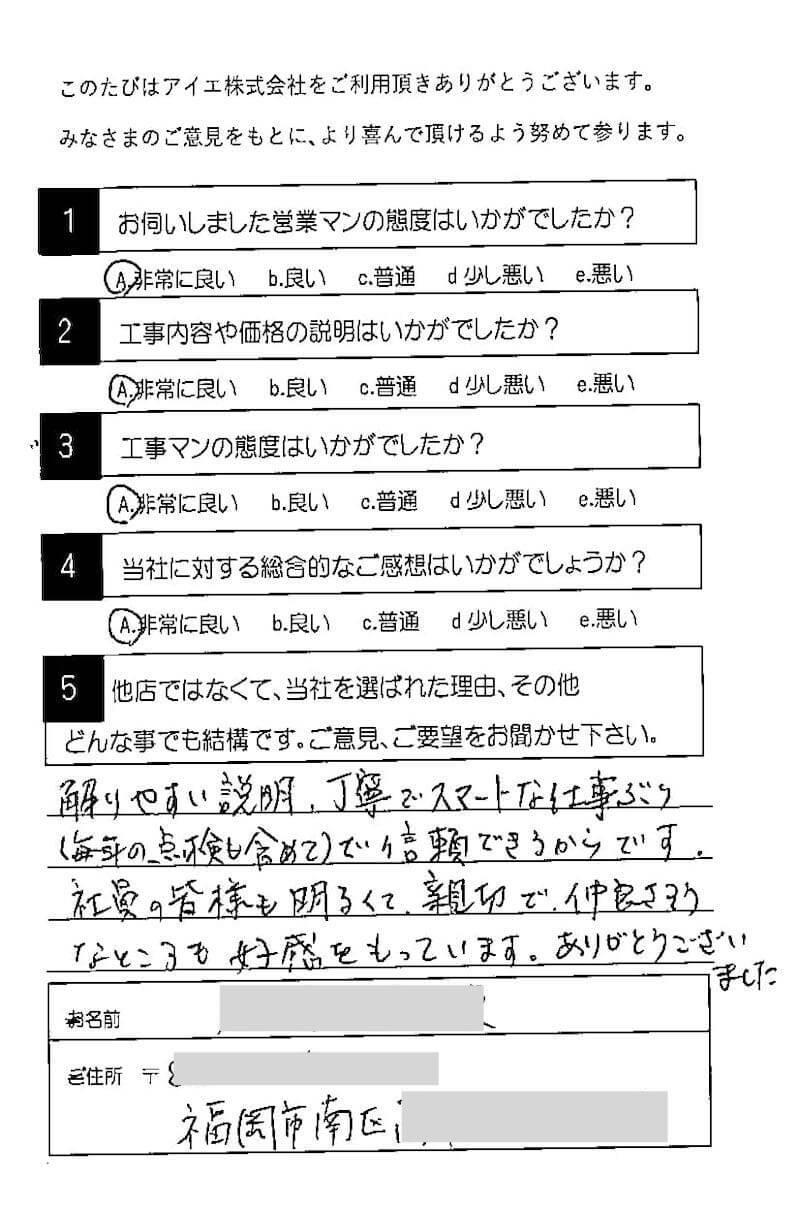 このたびはアイエ株式会社をご利用頂きありがとうございます。
みなさまのご意見をもとに、より喜んで頂けるよう努めて参ります。
1 お伺いしました営業マンの態度はいかがでしたか？
A.非常に良い b.良い c.普通 d 少し悪い e.悪い
2 工事内容や価格の説明はいかがでしたか？
A.非常に良い b.良い c.普通 d 少し悪い e.悪い
3 工事マンの態度はいかがでしたか？
A.非常に良い b.良い c.普通 d 少し悪い e.悪い
4 当社に対する総合的なご感想はいかがでしょうか？
A.非常に良い b.良い c.普通 d 少し悪い e.悪い
5 他店ではなくて、当社を選ばれた理由、その他
どんな事でも結構です。ご意見、ご要望をお聞かせ下さい。
解りやすい説明、丁寧でスマートな仕事ぶり
(毎年の点検も含めて)で信頼できるからです。
社員の皆様も明るくて、親切で、仲良さそう
なところも好感をもっています。ありがとうござい
ました
お名前
ご住所 〒
福岡市南区